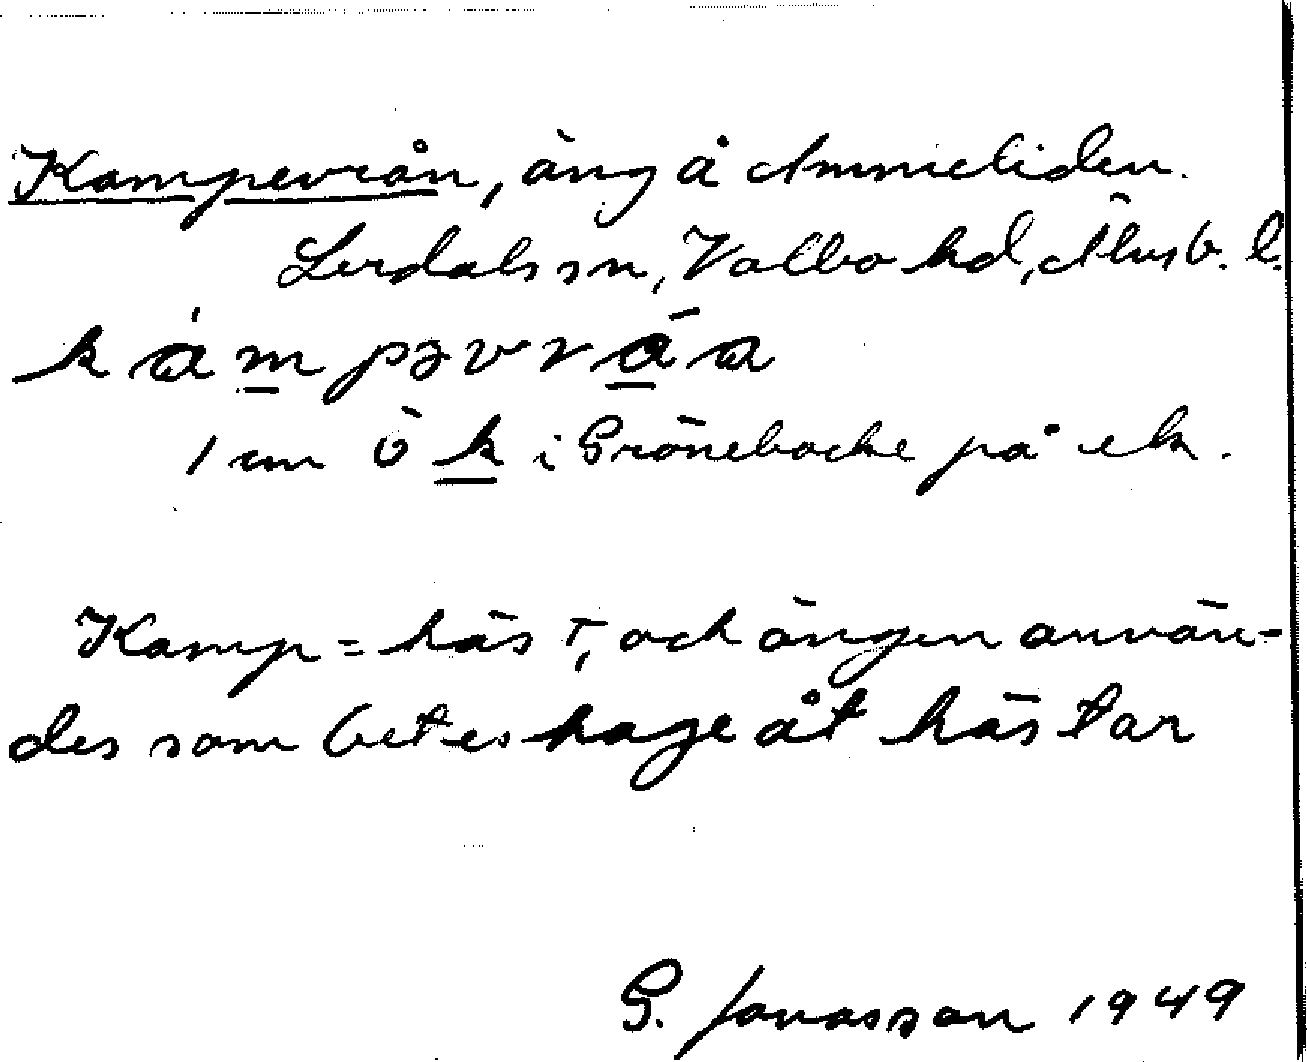 Kampevrån, äng å Ammeliden.
Lerdals sn, Valbo hd, Älvsb. l.
kampəvråa
1 cm Ö k i Gröneback på ek.
Kamp = häst, och ängen använ-
des som beteshage åt hästar
G. Jonasson 1949